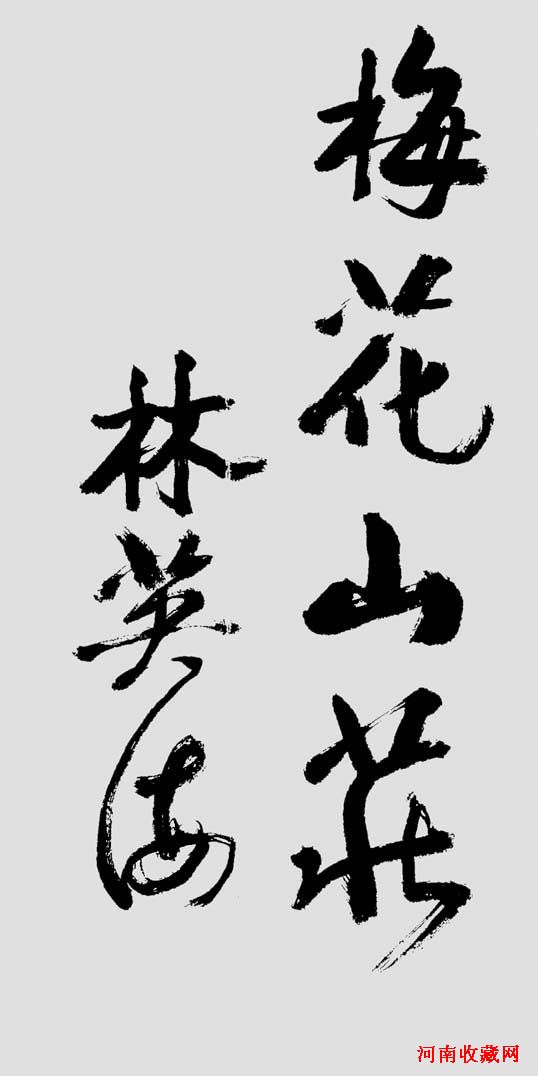 梅花山莊
林英海
河南收藏网